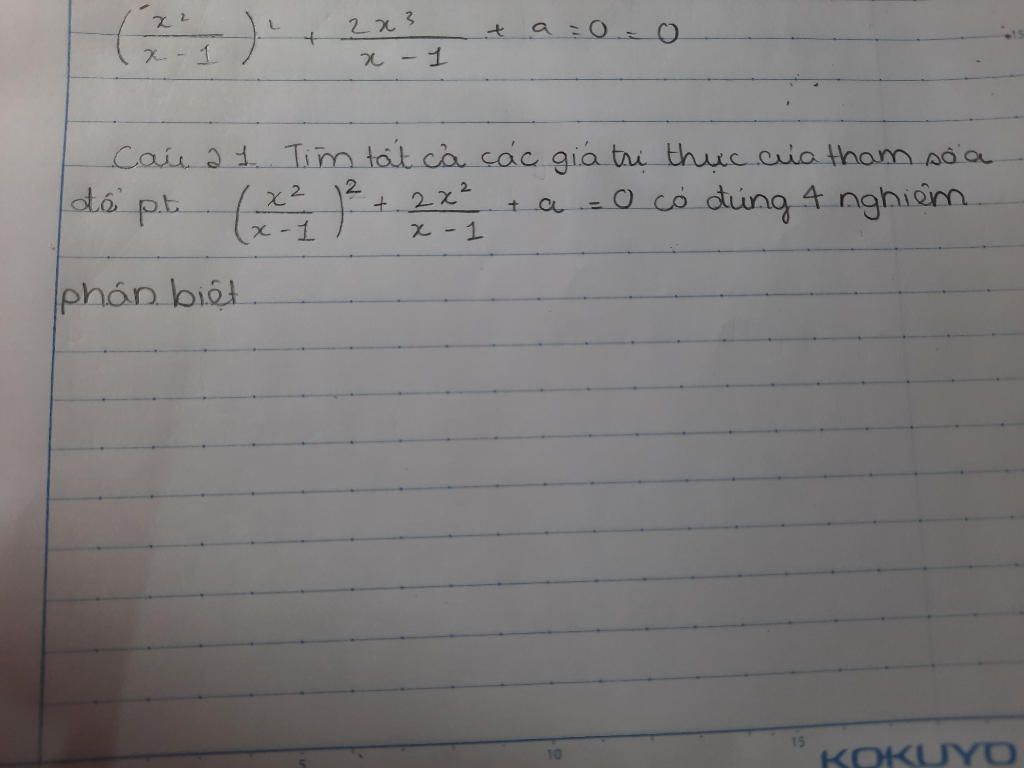 (x²/(x-1))² + 2x³/(x-1) + a = 0 = 0
Câu 21. Tìm tất cả các giá trị thực của tham số a
để pt (x²/(x-1))² + 2x²/(x-1) + a = 0 có đúng 4 nghiệm
phân biệt
5 10 15
KOKUYO